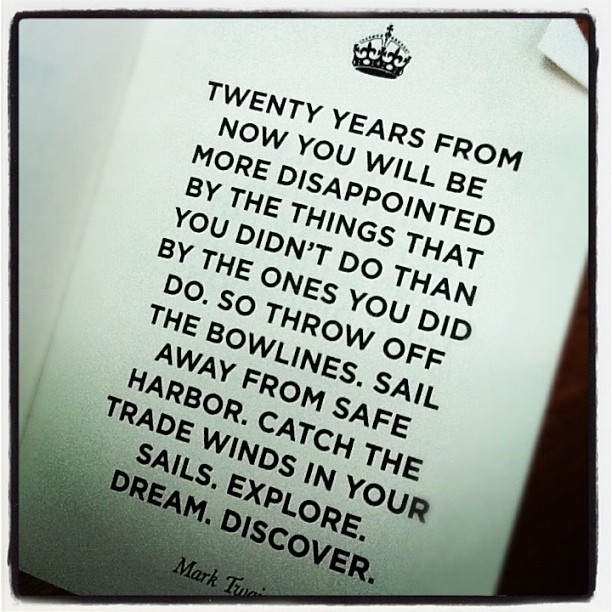 TWENTY YEARS FROM
NOW YOU WILL BE
MORE DISAPPOINTED
BY THE THINGS THAT
YOU DIDN'T DO THAN
BY THE ONES YOU DID
DO. SO THROW OFF
THE BOWLINES. SAIL
AWAY FROM SAFE
HARBOR. CATCH THE
TRADE WINDS IN YOUR
SAILS. EXPLORE.
DREAM. DISCOVER.
Mark Twai